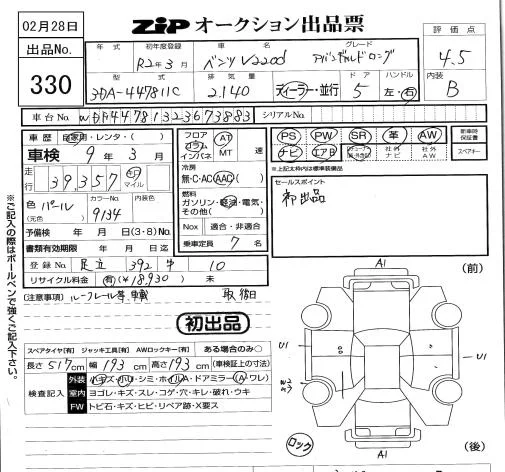 02月28日
ZIP オークション出品票
評価点
4.5
出品No.
330
年式
初年度登録
R2年3月
車名
ベンツ V220d
グレード
アバンギャルドロング
内装
B
型式
3DA-447811C
排気量
2.140
ディーラー・並行
ドア
5
ハンドル
左・右
車台No.
シリアルNo.
車歴 自家用・レンタ・( )
フロア
コラム
インパネ
AT
MT
速
PS PW SR 革 AW
ナビ エアB
社外ナビ
社外AW
新車時保証書
スペアキー
※上記太枠は標準装備品
車検 9年 3月
走行
39,357
km
マイル
冷房
無・C・AC・AAC( )
セールスポイント
初出品
色
(元色)
パール
カラーNo.
9134
内装色
燃料
ガソリン・軽油・電気・
その他( )
予備検 年 月 日(3・8)No.
Nox 適合・非適合
書類有効期限 年 月 日迄
乗車定員 7 名
登録No. 足立 392 サ 10
リサイクル料金 有(¥18,930) 未
(注意事項) ルーフレール等、車載 取説日
初出品
※ご記入の際はボールペンで強くご記入下さい。
スペアタイヤ[有] ジャッキ工具[有] AWロックキー[有] ある場合のみ○
長さ 517cm 幅 193cm 高さ 193cm (車検証上の寸法)
検査記入
外装 小キズ・小U・シミ・ホイルA・ドアミラー(A・ワレ)
室内 ヨゴレ・キズ・スレ・コゲ・穴・キレ・破れ・ウキ
FW トビ石・キズ・ヒビ・リペア跡・X要ス
A1
(前)
U1
U1
ロック
A1
(後)